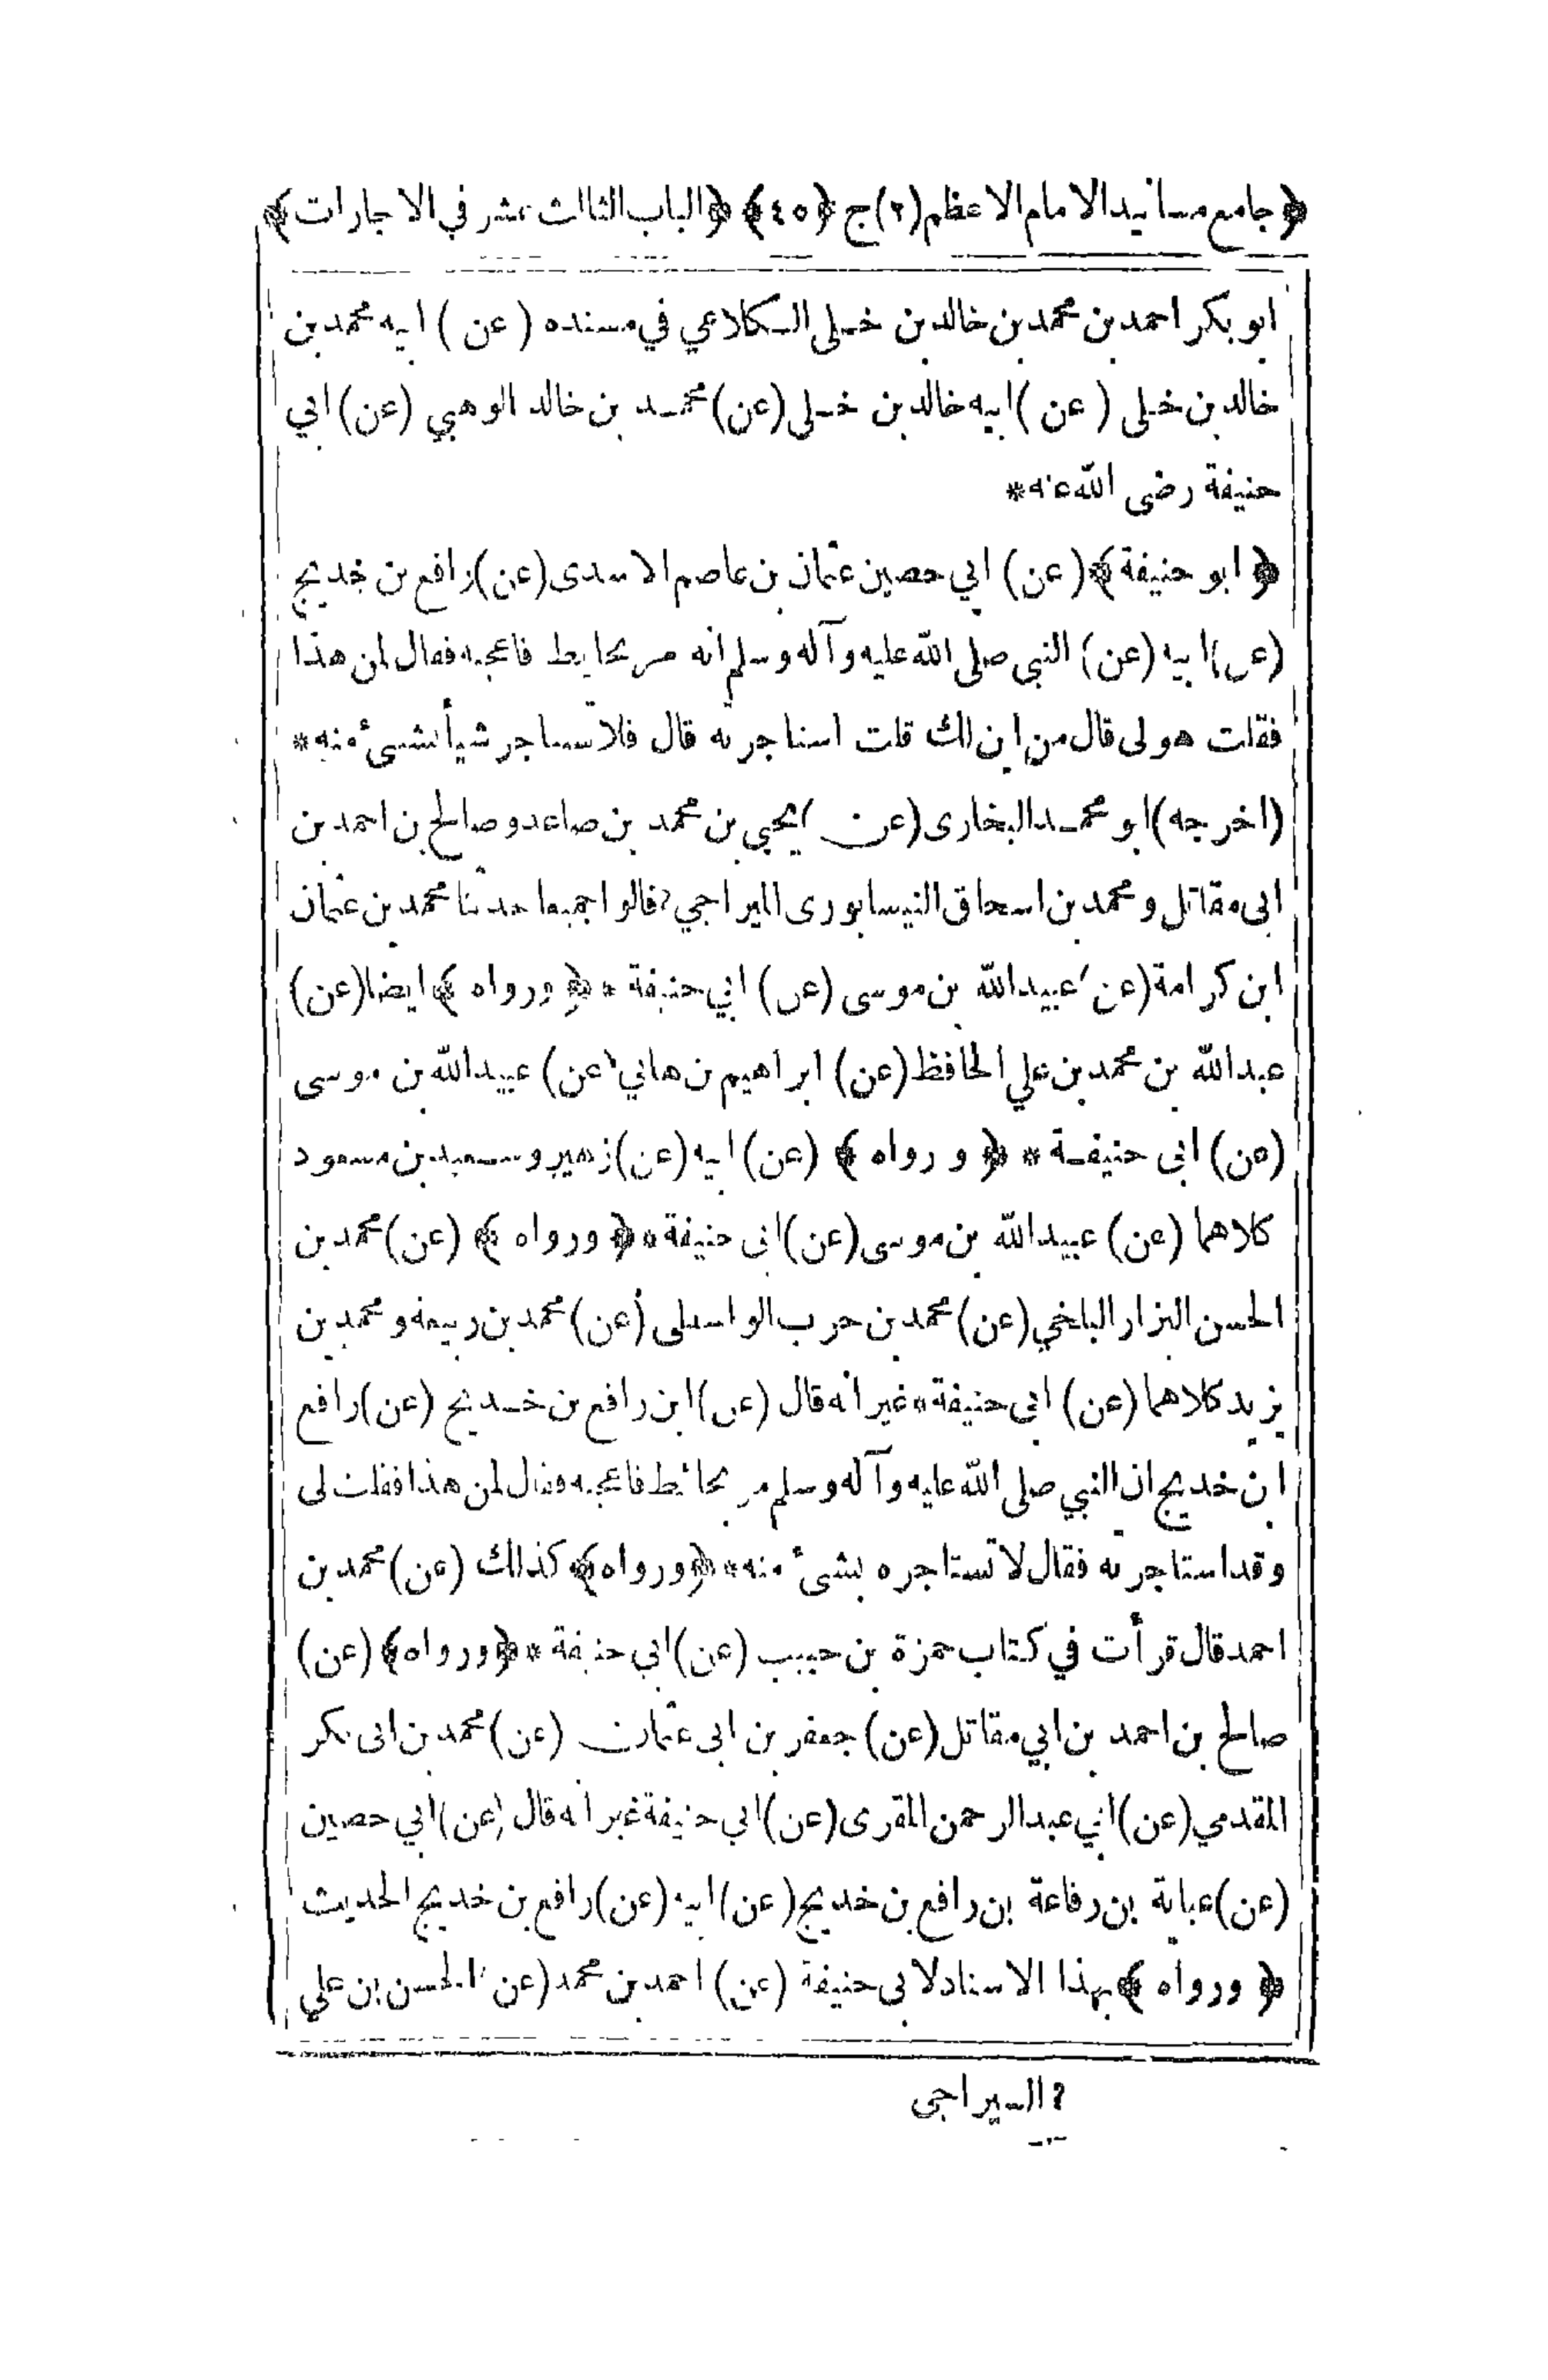 ﴿جامع مسانيد الامام الاعظم(٢)ج﴾ ﴿٤٥﴾ ﴿الباب الثالث عشر في الاجارات﴾
ابو بكر احمد بن محمد بن خالد بن خلى الكلاعي في مسنده ( عن ) ابيه محمد بن
خالد بن خلى ( عن ) ابيه خالد بن خلى (عن) محمد بن خالد الوهبي (عن) ابي
حنيفة رضى الله عنه *
﴿ ابو حنيفة﴾ (عن) ابي حصين عثمان بن عاصم الاسدى (عن) رافع بن خديج
(عن) ابيه (عن) النبي صلى الله عليه وآله وسلم انه مر بحايط فاعجبه فقال لمن هذا
فقلت هو لى قال من اين لك قلت استاجرته قال فلا تستاجر شيأ بشئ منه *
(اخرجه) ابو محمد البخارى (عن) يحيى بن محمد بن صاعد وصالح بن احمد بن
ابى مقاتل و محمد بن اسحاق النيسابورى المير اجي ? قالوا جميعا حدثنا محمد بن عثمان
ابن كرامة (عن) عبيدالله بن موسى (عن) ابي حنيفة * ﴿ ورواه ﴾ ايضا (عن)
عبدالله بن محمد بن علي الحافظ (عن) ابراهيم بن هاني (عن) عبيدالله بن موسى
(عن) ابى حنيفة * ﴿ و رواه ﴾ (عن) ابيه (عن) زهير و سعيد بن مسعود
كلاهما (عن) عبيدالله بن موسى (عن) ابى حنيفة * ﴿ ورواه ﴾ (عن) محمد بن
الحسن البزار البلخي (عن) محمد بن حرب الواسطى (عن) محمد بن ربيعة و محمد بن
يزيد كلاهما (عن) ابى حنيفة * غير انه قال (عن) ابن رافع بن خديج (عن) رافع
ابن خديج ان النبي صلى الله عليه وآله وسلم مر بحائط فاعجبه فقال لمن هذا فقلت لى
وقد استاجرته فقال لا تستاجره بشئ منه * ﴿ورواه﴾ كذلك (عن) محمد بن
احمد قال قرأت في كتاب حمزة بن حبيب (عن) ابي حنيفة * ﴿ورواه﴾ (عن)
صالح بن احمد بن ابي مقاتل (عن) جعفر بن ابى عثمان (عن) محمد بن ابى بكر
المقدمي (عن) ابي عبد الرحمن المقرى (عن) ابي حنيفة غير انه قال (عن) ابي حصين
(عن) عباية بن رفاعة بن رافع بن خديج (عن) ابيه (عن) رافع بن خديج الحديث
﴿ ورواه ﴾ بهذا الاسناد لابى حنيفة (عن) احمد بن محمد (عن) الحسن بن علي
? السيراجى